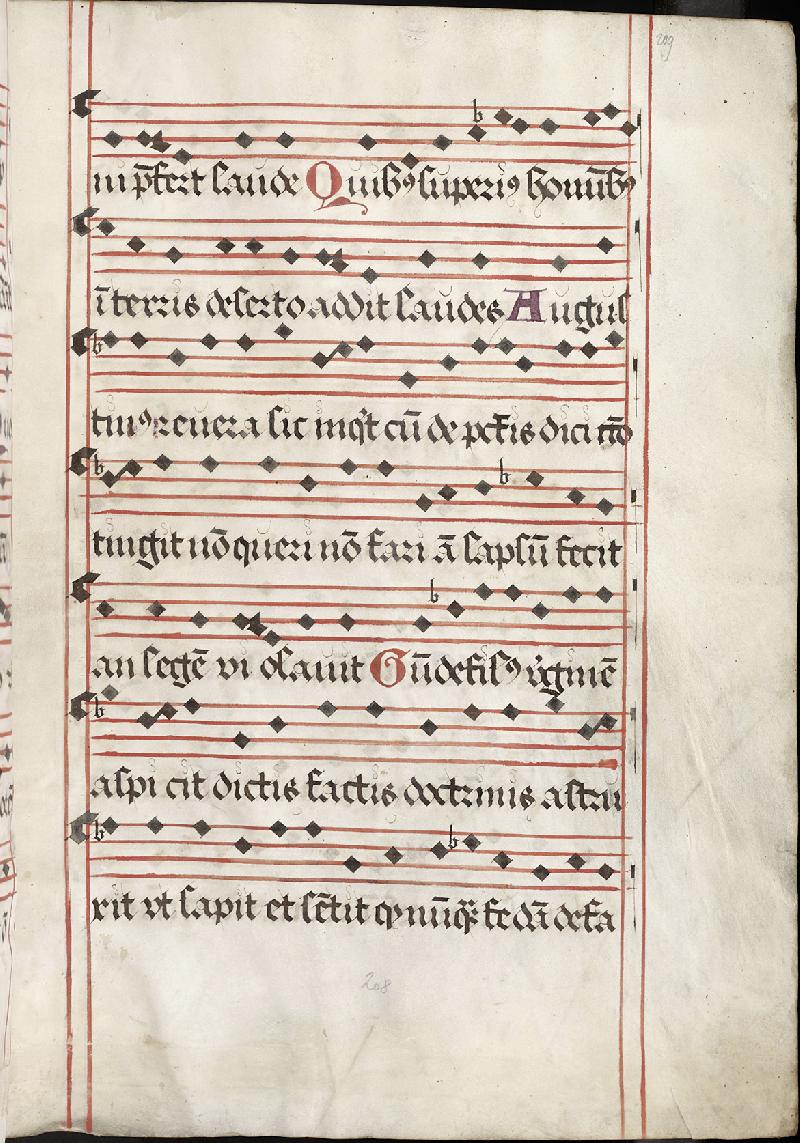 209
in p̄fert laude Quibꝯ superiꝯ hominibꝯ
ī terris deserto addit laudes Augus
tinꝯ reuera sic inq̇t cū de pctīs dici
tingit nō queri nō fari ā lapsū fecit
an legē vi olauit Cū de filꝯ v̇ginē
aspi cit dictis factis doctrinis astru
xit vt sapit et sētit nūq̄ fe dā de fa
208